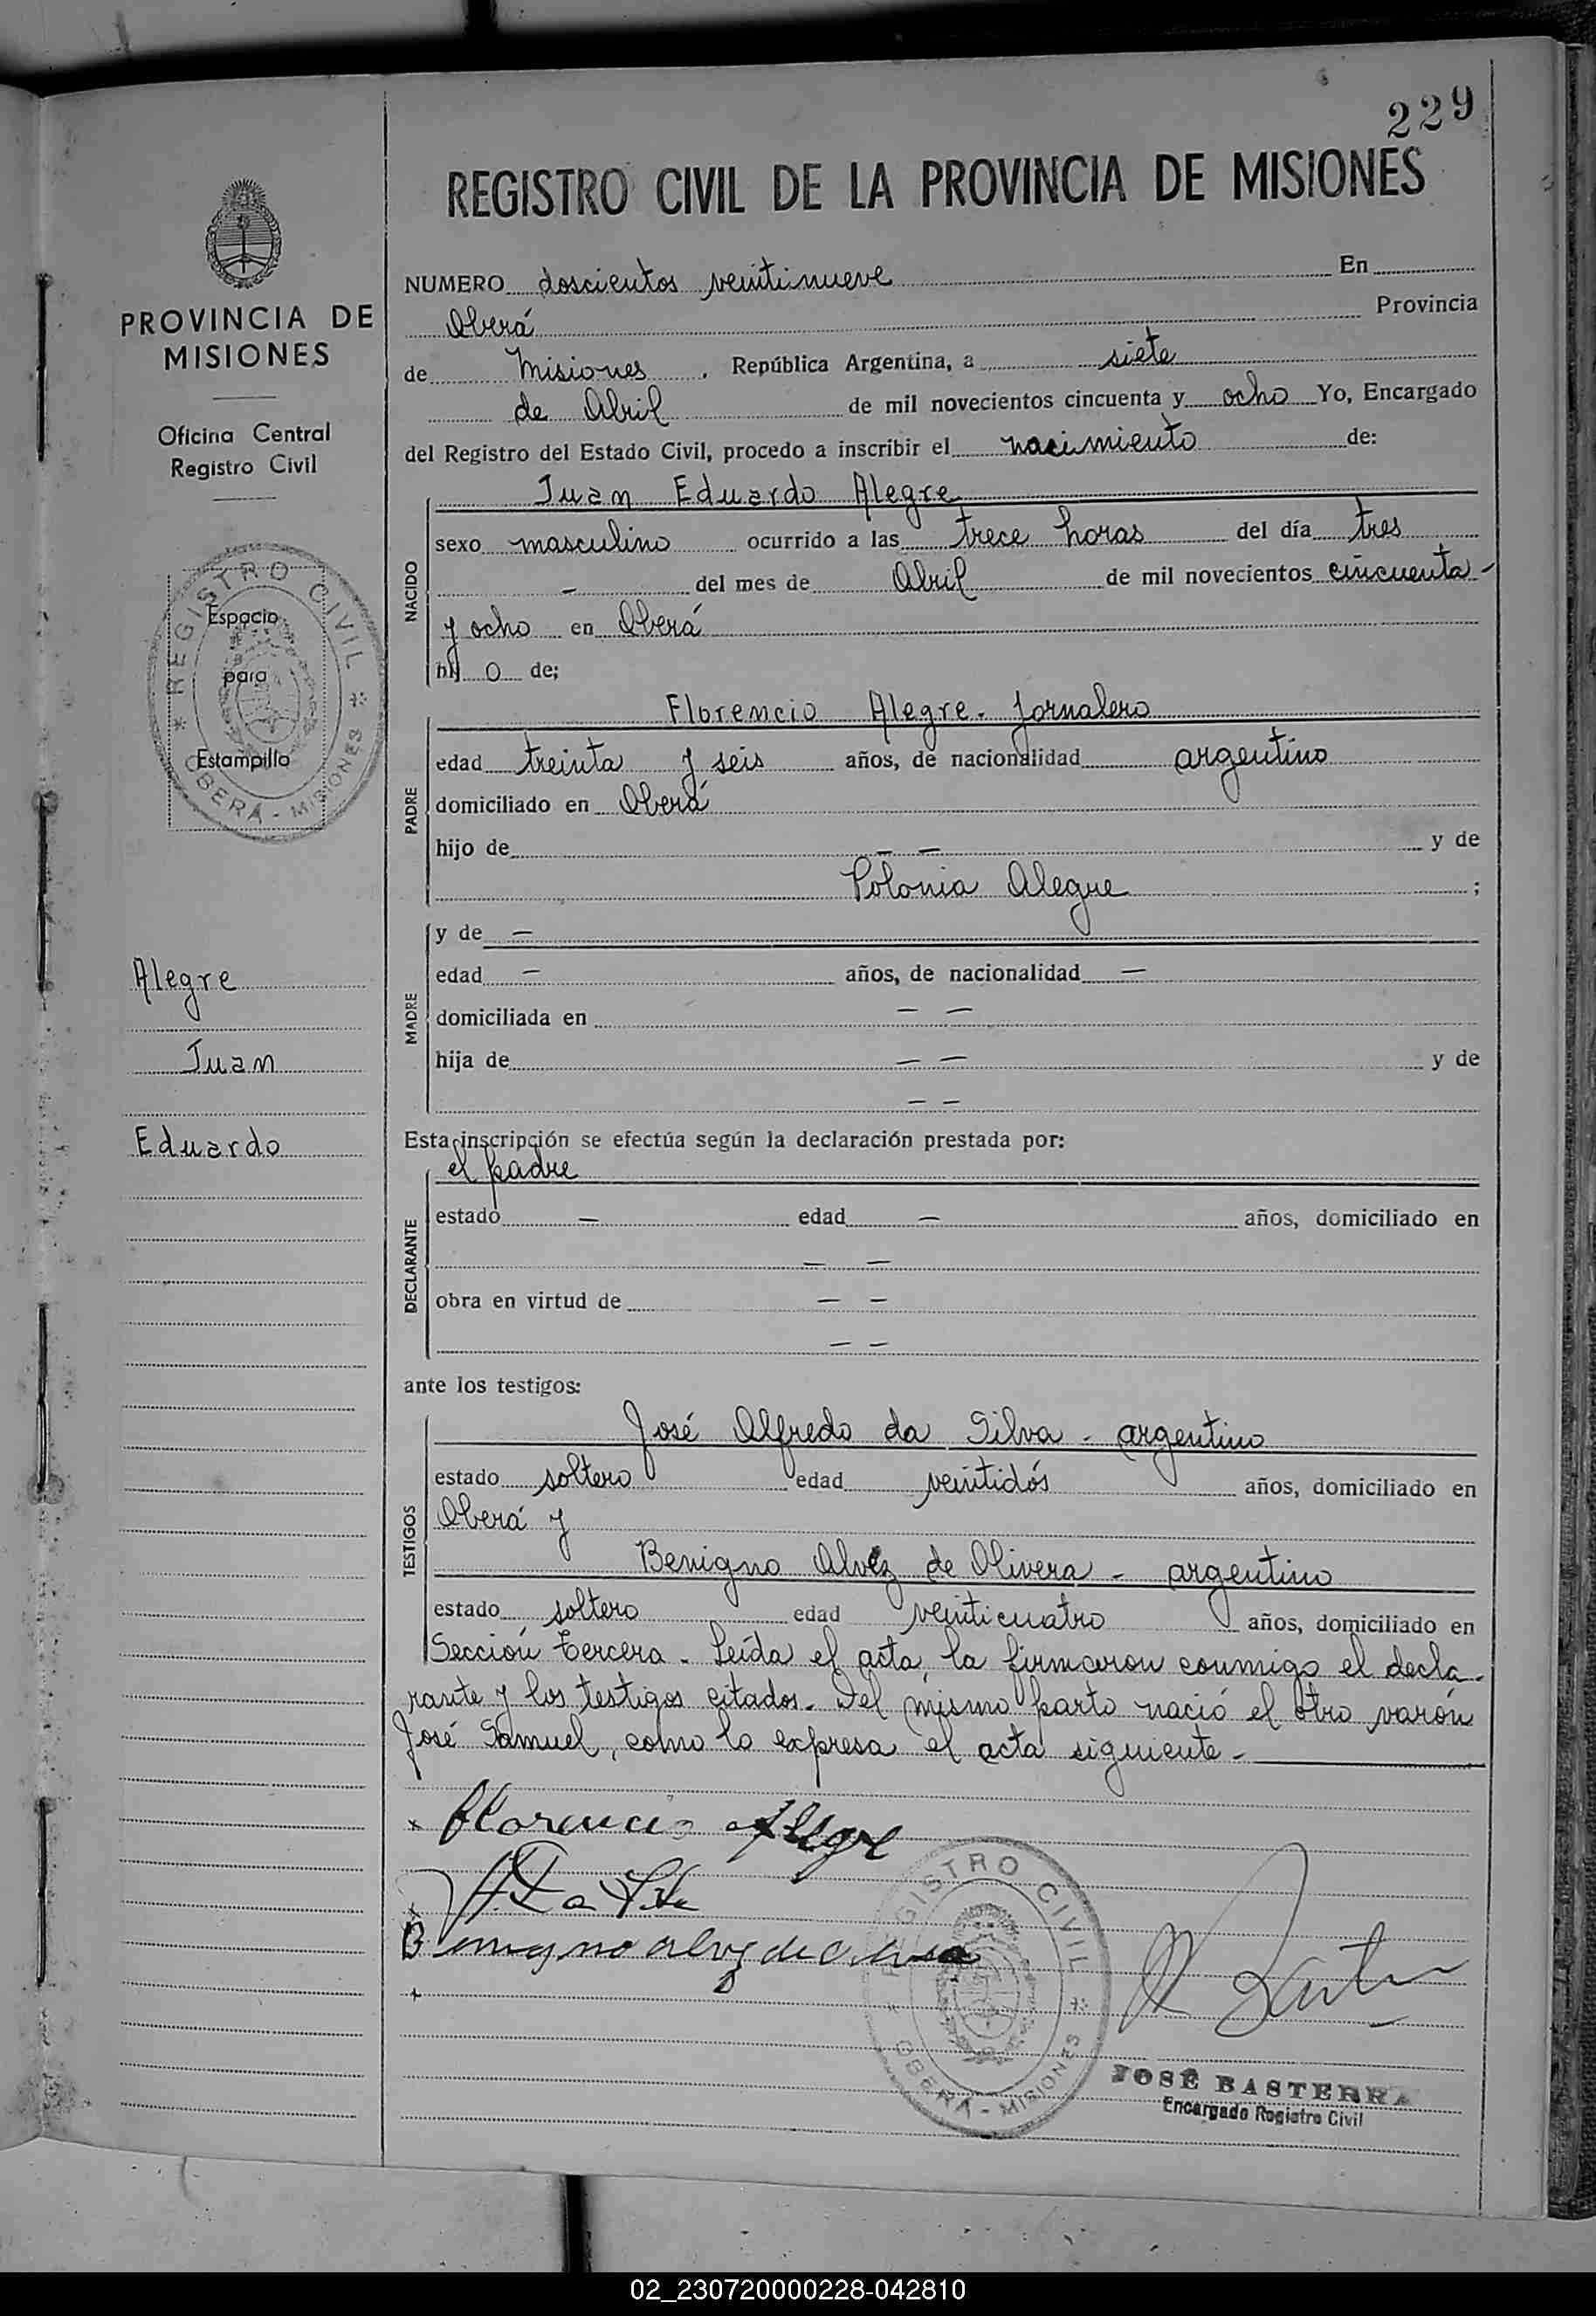 229
REGISTRO CIVIL DE LA PROVINCIA DE MISIONES
PROVINCIA DE
MISIONES
Oficina Central
Registro Civil
REGISTRO CIVIL
Espacio
para
Estampilla
OBERÁ - MISIONES
Alegre
Juan
Eduardo
NUMERO doscientos veintinueve En
Oberá Provincia
de Misiones, República Argentina, a siete
de Abril de mil novecientos cincuenta y ocho Yo, Encargado
del Registro del Estado Civil, procedo a inscribir el nacimiento de:
NACIDO
Juan Eduardo Alegre
sexo masculino ocurrido a las trece horas del día tres
— del mes de Abril de mil novecientos cincuenta -
y ocho en Oberá
hij o de;
PADRE
Florencio Alegre. Jornalero
edad treinta y seis años, de nacionalidad argentino
domiciliado en Oberá
hijo de — — y de
Polonia Alegre ;
MADRE
y de —
edad — años, de nacionalidad —
domiciliada en — —
hija de — — y de
— —
Esta inscripción se efectúa según la declaración prestada por:
DECLARANTE
el padre
estado — edad — años, domiciliado en
— —
obra en virtud de — —
— —
ante los testigos:
TESTIGOS
José Alfredo da Silva - argentino
estado soltero edad veintidós años, domiciliado en
Oberá y
Benigno Alvez de Olivera - argentino
estado soltero edad veinticuatro años, domiciliado en
Sección tercera - Leída el acta, la firmaron conmigo el decla-
rante y los testigos citados. Del mismo parto nació el otro varón
José Samuel, como lo expresa el acta siguiente -
Florencio Alegre
REGISTRO CIVIL
OBERÁ - MISIONES
JOSÉ BASTERRA
Encargado Registro Civil
02_230720000228-042810